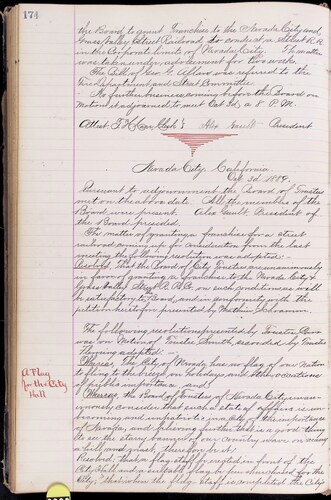 174
the Board to grant Franchise to the Nevada City and
Grass Valley Street Railroad to construct a Street R.R.
in the Corporate limits of Nevada City. The matter
was taken under advisement for two weeks
The Bill of Geo. G. Allan was referred to the
Fire Department and Street Committee
No further business coming before the Board on
Motion it adjourned to meet Oct 3d at 8 P.M.
Attest T.H. Carr Clerk Alex Gault President
Nevada City, California
Oct. 3d 1889.
Pursuant to adjournment the Board of Trustees
met on the above date. All the members of the
Board were present. Alex Gault President of
the Board presided.
The matter of granting a franchise for a street
railroad coming up for consideration from the last
meeting the following resolution was adopted:
Resolved, That the Board of City Trustees are unanimously
in favor of granting a franchise to the Nevada City &
Grass Valley Street R.R. Co. on such conditions as will
be satisfactory to the Board, and in conformity with the
petition heretofore presented by
The following resolution presented by Trustee
was on Motion of Trustee Smith, seconded by Trustee
Fleming adopted
Whereas, The City of Nevada has no flag of our Nation
to fling to the breeze on holidays and other occasions
of public importance, and
Whereas, the Board of Trustees of Nevada City unani-
mously consider that such a state of affairs is un-
becoming and unpatriotic in a city of the importance
of Nevada, and believing further that it is a good thing
to see the starry banner of our Country wave on every
hill and mast, therefore be it
A Flag
for the City
Hall
Resolved, that a flag staff be erected in front of the
City Hall and a suitable flag be purchased for the
City; that when the flag staff is completed the City